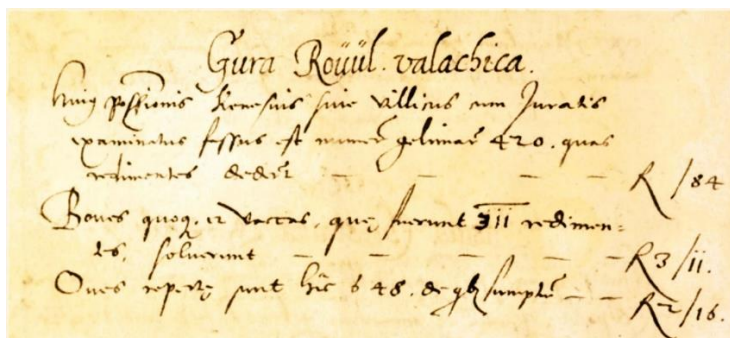 Gura Roüül. valachica.
huius possionis kenesius siue villicus cum Juratis
examinatus fassus est numerũ gelimarũ 420. quas
redimentes dederũt — — — — — R /84
Boues quoq. et vaccas, quę fuerunt 311 redimen=
tes, soluerunt — — — — — R 3/11.
Oues repertę sunt hic 48. de qbz sumptũ — — R 2/16.